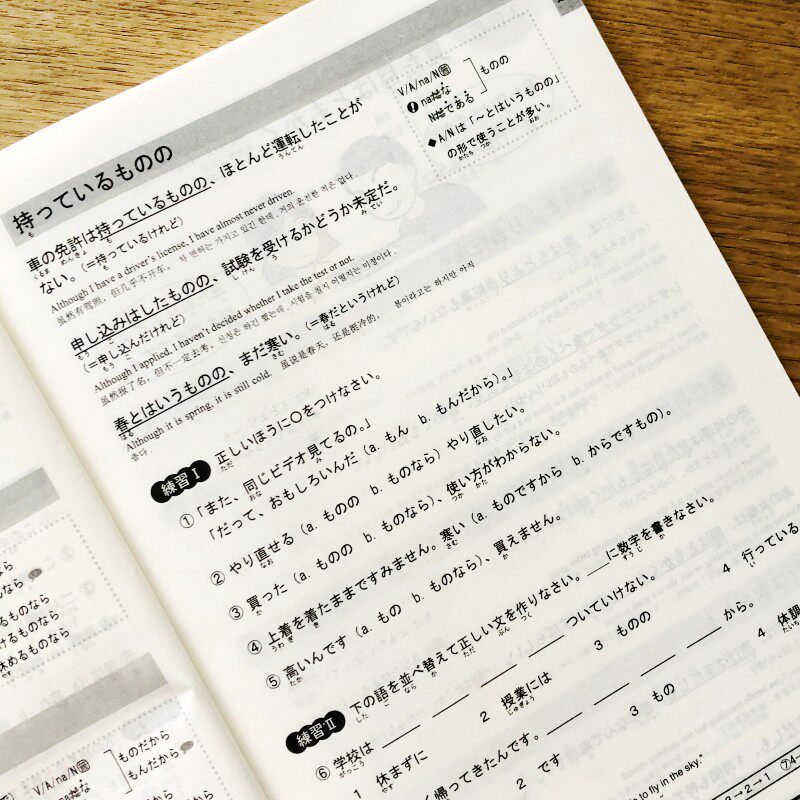 持っているものの
V/A/na/N普
❶na形な
N形である
ものの
◆A/Nは「〜とはいうものの」
の形で使うことが多い。
車の免許は持っているものの、ほとんど運転したことが
ない。(＝持っているけれど)
Although I have a driver's license, I have almost never driven.
虽然有驾照，但几乎不开车。 차 면허는 가지고 있긴 한데, 거의 운전한 적은 없다.
申し込みはしたものの、試験を受けるかどうか未定だ。
(＝申し込んだけれど)
Although I applied, I haven't decided whether I take the test or not.
虽然报了名，但不一定去考。 신청은 하긴 했는데, 시험을 칠지 어떨지는 미정이다.
春とはいうものの、まだ寒い。(＝春だというけれど)
Although it is spring, it is still cold. 虽说是春天，还是挺冷的。 봄이라고는 하지만 아직
춥다.
練習Ⅰ 正しいほうに○をつけなさい。
①「また、同じビデオ見てるの。」
「だって、おもしろいんだ（a. もん b. もんだから）。」
② やり直せる（a. ものの b. ものなら）やり直したい。
③ 買った（a. ものの b. ものなら）、使い方がわからない。
④ 上着を着たままですみません。寒い（a. ものですから b. からですもの）。
⑤ 高いんです（a. もの b. ものなら）、買えません。
練習Ⅱ 下の語を並べ替えて正しい文を作りなさい。___に数字を書きなさい。
⑥ 学校は ___ ___ ___ ___ ついていけない。
1 休まずに 2 授業には 3 ものの 4 行っている
く帰ってきたんです。 ___ ___ ___ ___ から。
2 です 3 もの 4 体調
to fly in the sky."
→2→1 ⑦4
なら
なら
るものなら
けるものなら
休めるものなら
V/A/na/N普
na形な
ものだから
もんだから